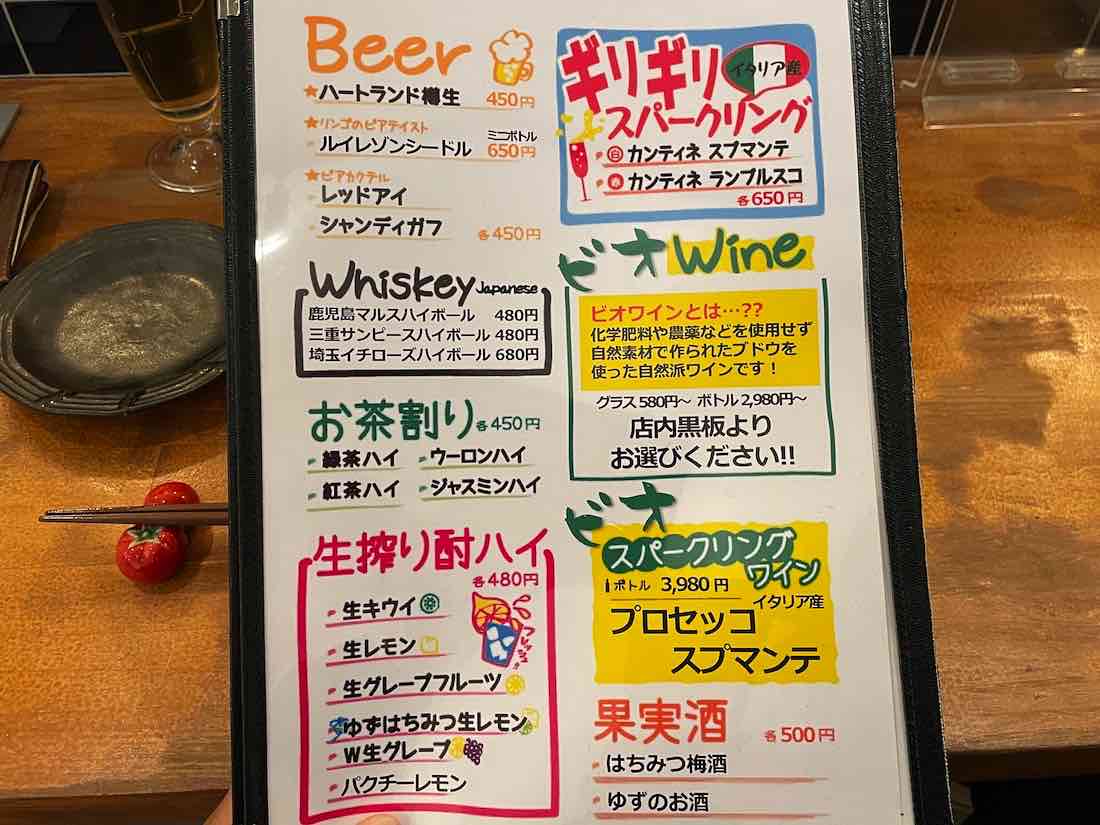 Beer
★ハートランド樽生 450円
★リンゴのビアテイスト
ルイレゾンシードル ミニボトル 650円
★ビアカクテル
レッドアイ
シャンディガフ 各450円
Whiskey Japanese
鹿児島マルスハイボール 480円
三重サンピースハイボール 480円
埼玉イチローズハイボール 680円
お茶割り 各450円
緑茶ハイ ウーロンハイ
紅茶ハイ ジャスミンハイ
生搾り酎ハイ
各480円
生キウイ
生レモン
フレッシュ!!
生グレープフルーツ
ゆずはちみつ生レモン
W生グレープ
パクチーレモン
ギリギリ イタリア産
スパークリング
白 カンティネ スプマンテ
赤 カンティネ ランブルスコ
各650円
ビオ Wine
ビオワインとは…??
化学肥料や農薬などを使用せず
自然素材で作られたブドウを
使った自然派ワインです!
グラス 580円〜 ボトル 2,980円〜
店内黒板より
お選びください!!
ビオ
スパークリング
ワイン
ボトル 3,980円
イタリア産
プロセッコ
スプマンテ
果実酒 各500円
はちみつ梅酒
ゆずのお酒